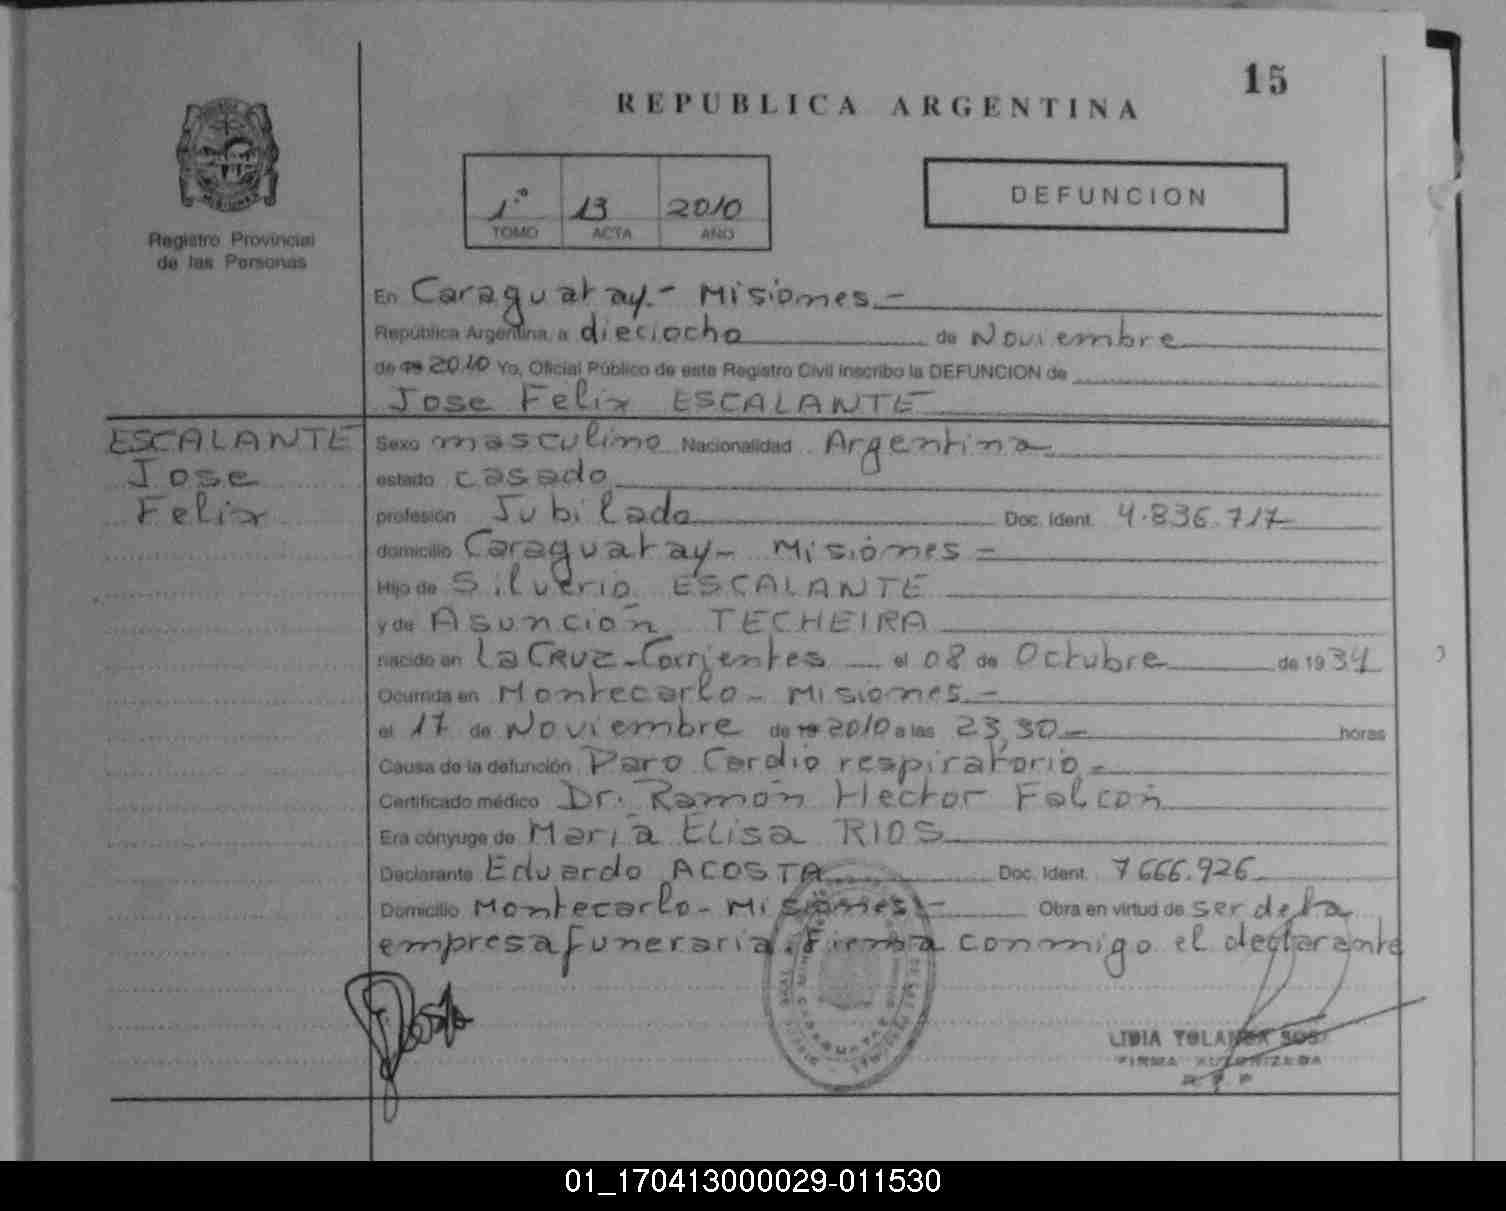 15
REPUBLICA ARGENTINA
1º 13 2010
TOMO ACTA AÑO
DEFUNCION
Registro Provincial
de las Personas
En Caraguatay - Misiones -
República Argentina, a dieciocho de Noviembre
de 19 2010 Yo, Oficial Público de este Registro Civil inscribo la DEFUNCION de
Jose Felix ESCALANTE
ESCALANTE
Jose
Felix
Sexo masculino Nacionalidad Argentina
estado casado
profesión Jubilado Doc. Ident. 4.836.717
domicilio Caraguatay - Misiones -
Hijo de Silverio ESCALANTE
y de Asunción TECHEIRA
nacido en La CRUZ - Corrientes el 08 de Octubre de 1934
Ocurrida en Montecarlo - Misiones -
el 17 de Noviembre de 19 2010 a las 23,30 - horas
Causa de la defunción Paro Cardio respiratorio -
Certificado médico Dr. Ramón Hector Falcón
Era cónyuge de María Elisa RIOS
Declarante Eduardo ACOSTA Doc. Ident. 7666.926
Domicilio Montecarlo - Misiones - Obra en virtud de ser de la
empresa funeraria. Firma conmigo el declarante
LIDIA YOLANDA SOS
FIRMA AUTORIZADA
R P P
01_170413000029-011530